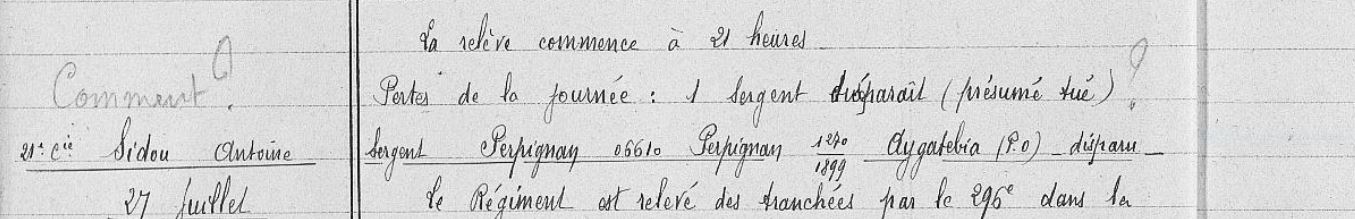 La relève commence à 21 heures
Comment ?
Pertes de la journée : 1 Sergent disparaît (présumé tué) ?
21e Cie Sidou Antoine
Sergent Perpignan 06610 Perpignan 1270/1899 Aygatebia (P.O) _ disparu _
27 Juillet
Le Régiment est relevé des tranchées par le 296e dans la